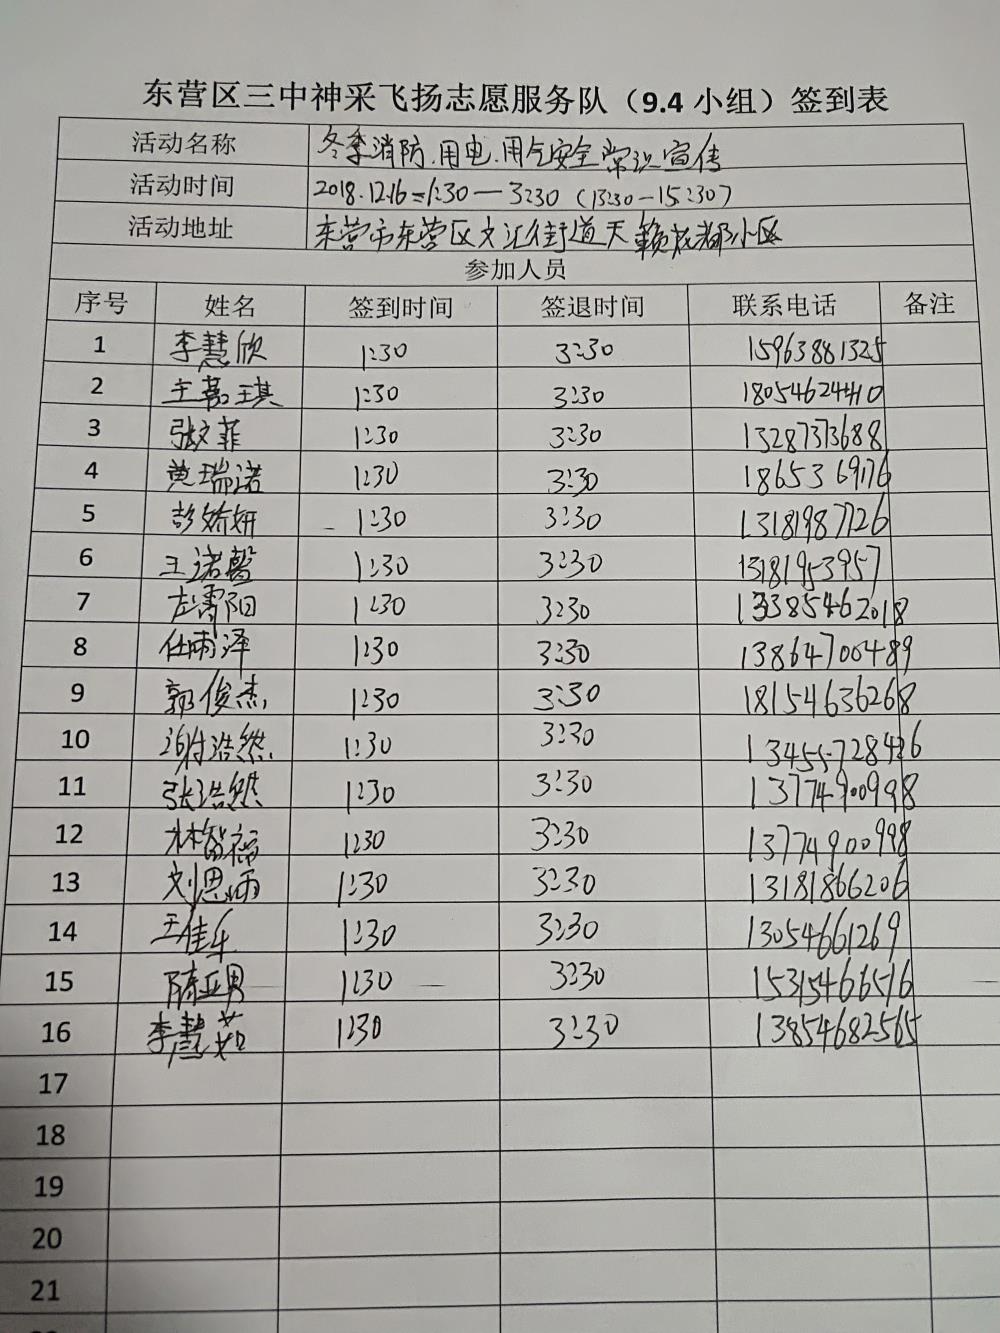 东营区三中神采飞扬志愿服务队（9.4 小组）签到表
活动名称 冬季消防.用电.用气安全常识宣传
活动时间 2018.12.16=1:30—3:30（13:30—15:30）
活动地址 东营市东营区文汇街道天籁花都小区
参加人员
序号 姓名 签到时间 签退时间 联系电话 备注
1 李慧欣 1:30 3:30 15963881325
2 王嘉琪 1:30 3:30 18054624410
3 张文菲 1:30 3:30 13287373688
4 黄瑞诺 1:30 3:30 1865369176
5 彭娇妍 1:30 3:30 13181987726
6 王诺馨 1:30 3:30 13181953957
7 左霄阳 1:30 3:30 13385462018
8 任雨泽 1:30 3:30 13864700489
9 郭俊杰 1:30 3:30 18154636268
10 谢浩然 1:30 3:30 13455728426
11 张浩然 1:30 3:30 13774900998
12 林智福 1:30 3:30 13774900998
13 刘恩雨 1:30 3:30 13181866206
14 王佳乐 1:30 3:30 13054661269
15 陈亚男 1:30 3:30 15315466516
16 李慧茹 1:30 3:30 13854682565
17
18
19
20
21